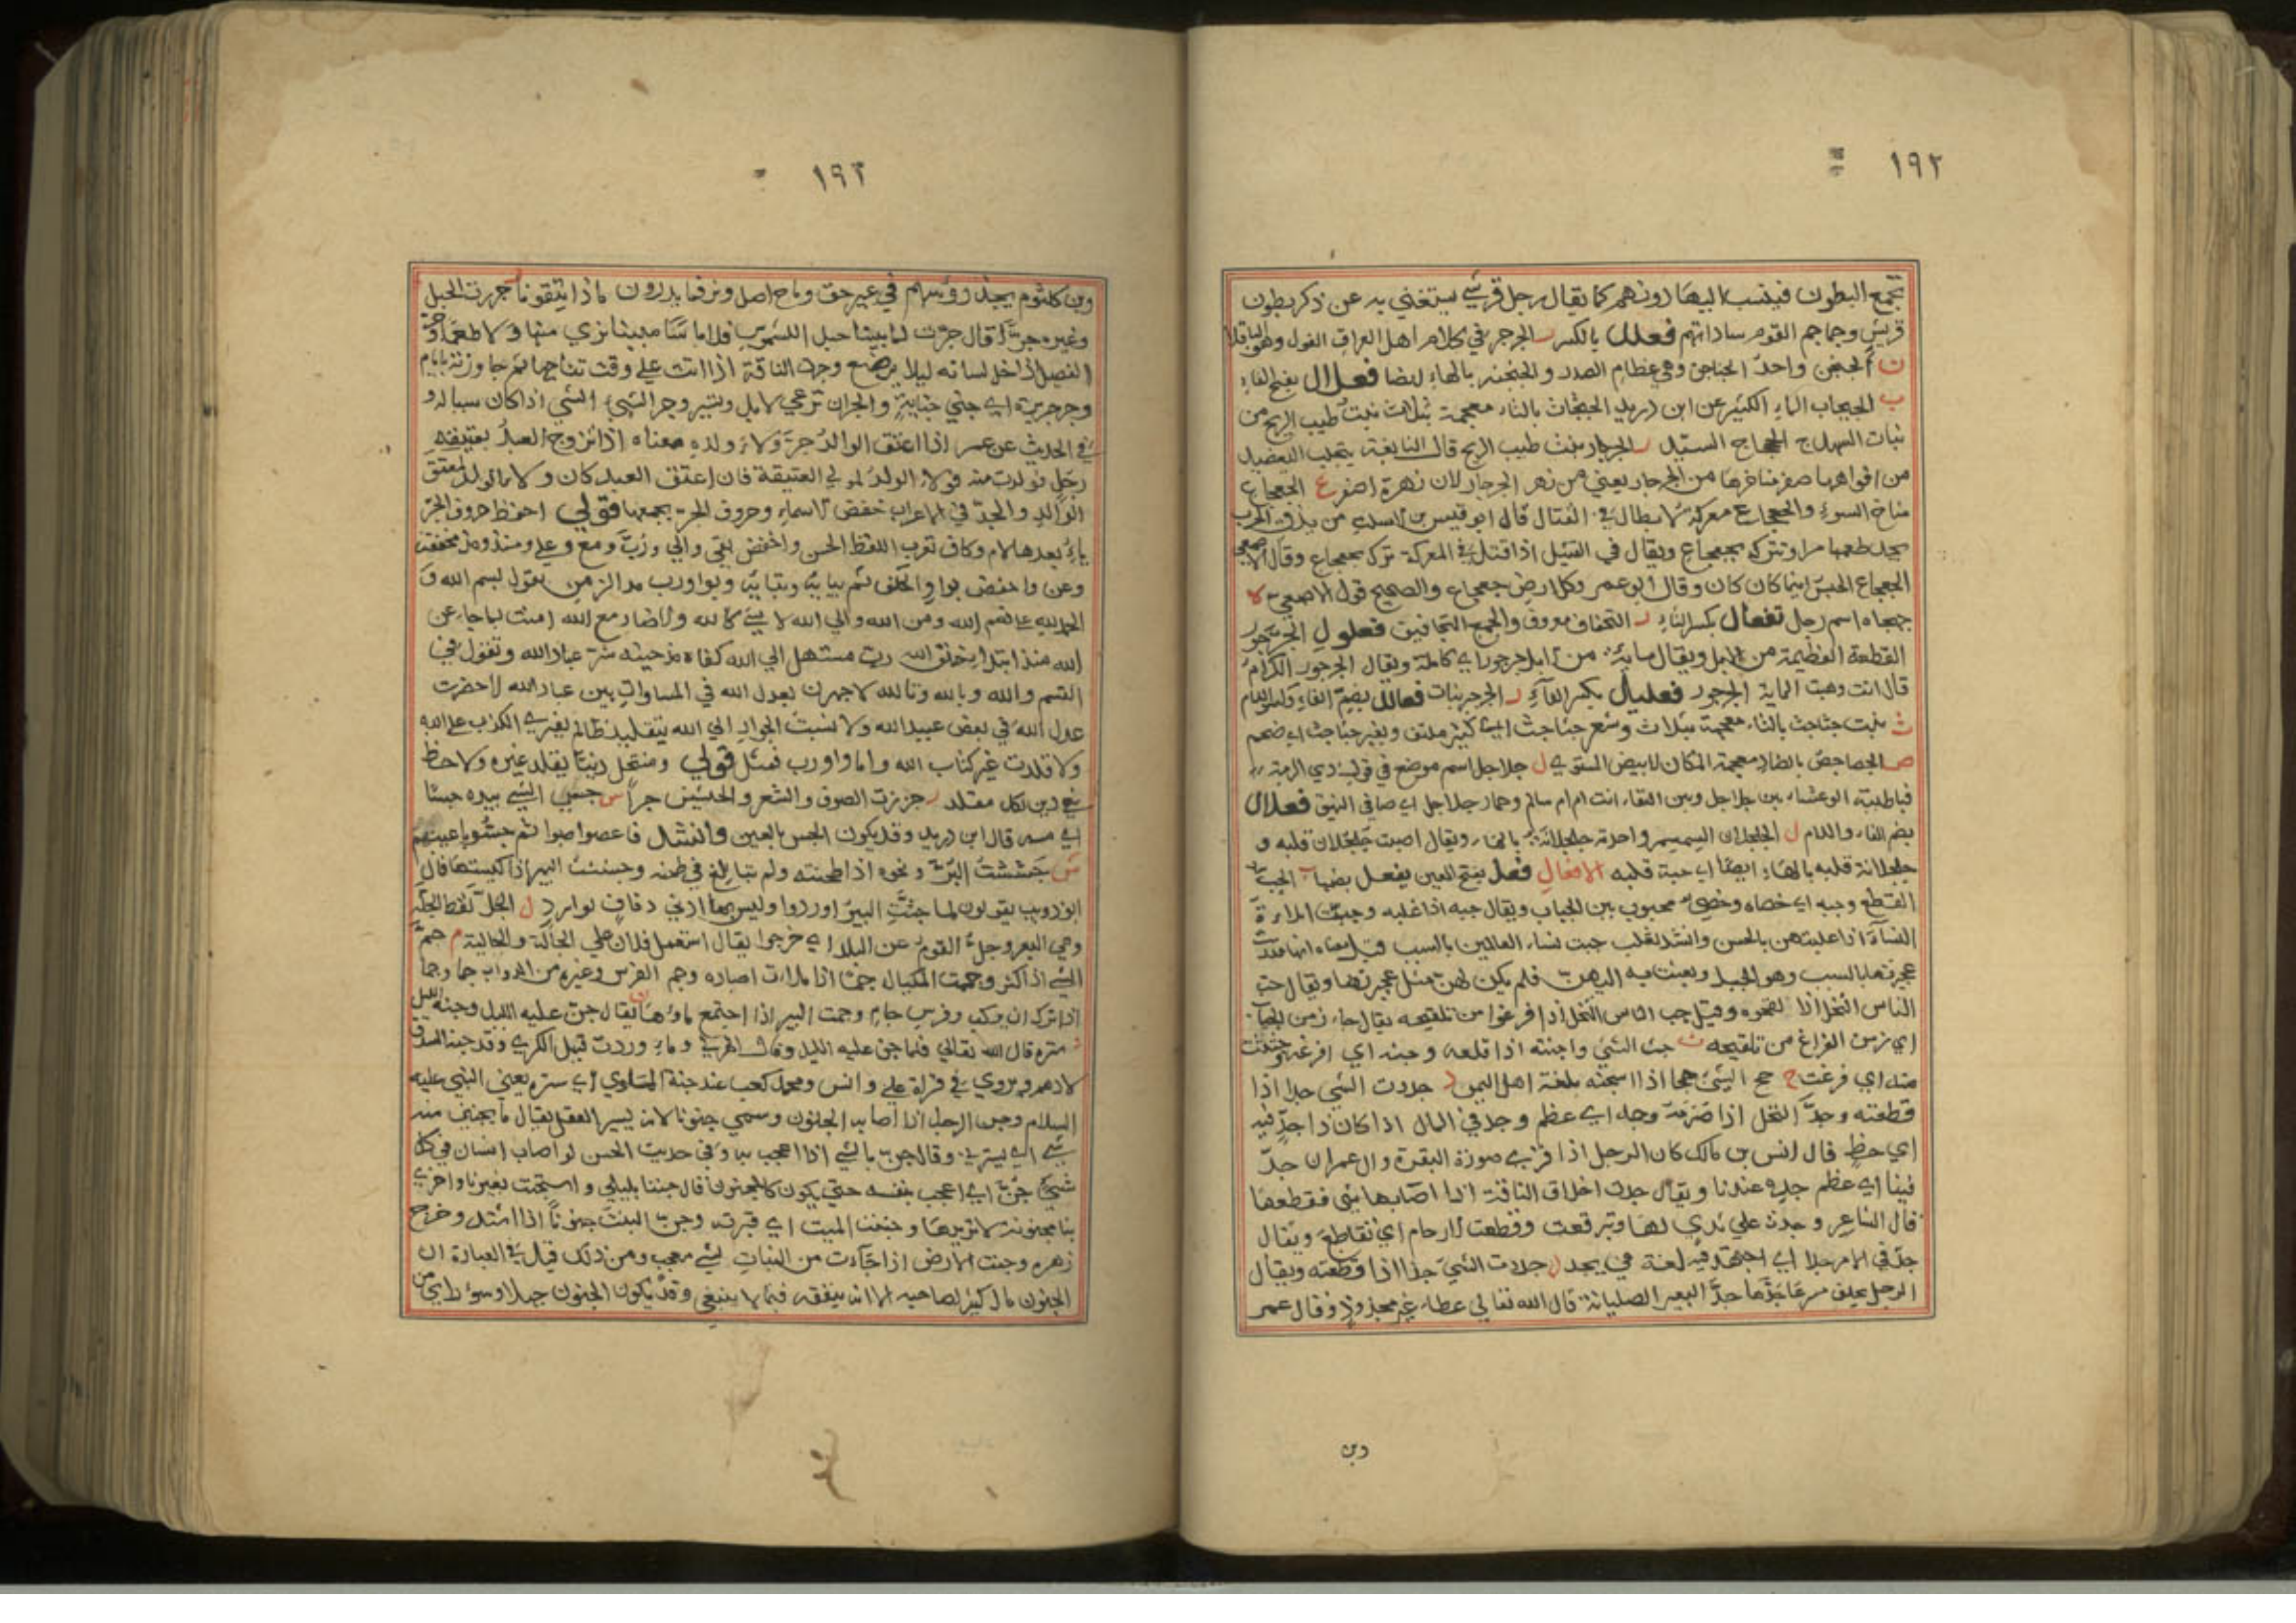 ١٩٢
تجمع البطون فينسب اليها دونهم كما يقال رجل قرشي يستغني به عن ذكر بطون
قريش وجماجم القوم ساداتهم فعلل بالكسر ر الجرجر في كلام اهل العراق الفول وهو الباقلا
ن الجنجن واحد الجناجن وهي عظام الصدر والجنجنه بالهاء ايضا فعلال بفتح الفاء
ب الجبجاب الماء الكثير عن ابن دريد الجثجاث بالثاء معجمة بثلاث نبت طيب الريح من
نبات السهل ج الجحجاح السيد ر الجرجار نبت طيب الريح قال النابغة يتحلب اليعضيد
من افواهها صفر مناخرها من الجرجار يعني من زهر الجرجار لان زهرة اصفر ع الجعجاع
مناخ السوء والجعجاع معركة الابطال في القتال قال ابو قيس بن الاسلت من يذق الحرب
يجد طعمها مرا وتتركه بجعجاع ويقال في القتيل اذا قتل في المعركة ترك بجعجاع وقال الاصمعي
الجعجاع الحبس اينما كان كان وقال ابو عمر وكل ارض جعجاع والصحيح قول الاصمعي ه
جهجاه اسم رجل تفعال بكسر التاء التجفاف معروف والجمع التجافيف فعلول الجرجور
القطعة العظيمة من الابل ويقال مائة من الابل جرجور اي كاملة ويقال الجرجور الكرام
قال انت وهبت الماية الجرجور فعليل بكسر الفاء ر الجرجير نبات فعالل بضم الفاء وكسر اللام
ث نبت جثاجث بالثاء معجمة بثلاث وشعر جثاجث اي كثير ملتف وبعير جثاجث اي ضخم
ض الجضاجض بالضاد معجمة المكان الابيض المستوي ل جلاجل اسم موضع في قول ذي الرمة
فيا ظبية الوعثاء بين جلاجل وبين النقاء انت ام ام سالم وحمار جلاجل اي صافي النهيق فعلال
بضم الفاء واللام ل الجلجلان السمسم واحدته جلجلانة بالهاء ويقال اصبت جلجلان قلبه و
جلجلانة قلبه بالهاء ايضا اي حبة قلبه الافعال فعل بفتح العين يفعل بضمها ب الجب
القطع وجبه اي خصاه وخصي مجبوب بين الجباب ويقال جبه اذا غلبه وجبت المراة
النساء اذا غلبتهن بالحسن وانشد ثعلب جبت نساء العالمين بالسبب قيل معناه انها قدرت
عجيزتها بالسبب وهو الحبل وبعثت به اليهن فلم يكن لهن مثل عجيزتها ويقال جب
الناس النخل اذا لقحوه وقيل جب الناس النخل اذا فرغوا من تلقيحه يقال جاء زمن الجباب
اي زمن الفراغ من تلقيحه ث جث الشي واجتثه اذا قلعه وجثه اي افزعه وجثثت
منه اي فزعت ح جح الشي جحا اذا سحبه بلغة اهل اليمن د جددت الشي جدا اذا
قطعته وجد النخل اذا صرمه وجد اي عظم وجد في المال اذا كان ذا جد فيه
اي حظ قال انس بن مالك كان الرجل اذا قرى سورة البقرة وال عمران جد
فينا اي عظم جده عندنا ويقال جدت اخلاف الناقة اذا اصابها شي فقطعها
قال الشاعر وجدت علي ثدي لها وتبرقعت وقطعت الارحام اي تقاطع ويقال
جد في الامر جدا اي اجتهد فيه لغة في يجد ذ جذذت الشي جذا اذا قطعته ويقال
الرجل يحلف مسرعا جذها جذ البعير الصليانة قال الله تعالي عطاء غير مجذوذ وقال عمر
وبن
١٩٣
وبن كلثوم يجذ رووسهم في غير حق وما ح اصل ونرفما يدرون ماذا يتقونا ر جررت الحبل
وغيره جرا قال جرت لما بيننا حبل الشموس فلا ياسا مبينا نري منها ولا طمعا وجر
الفصيل اذا خل لسانه ليلا يرضع وجرت الناقة اذا اتت علي وقت نتاجها ثم جاوزته بايام
وجر جريرة اي جني جناية والجران ترعي الابل وتسير وجر الشيء الشي اذا كان سببا له و
في الحديث عن عمر اذا اعتق الوالد جر ولاء ولده معناه اذا تزوج العبد بعتيقة
رجل فولدت منه فولاء الولد لمولي العتيقة فان اعتق العبد كان ولاء الولد لمعتق
الوالد والجر في الاعراب خفض الاسماء وحروف الجر يجمعها قولي احفظ حروف الجر
باء بعدها لام وكاف تعرب اللفظ الحسن واخفض بفي والي ورب ومع وعلي ومنذ ومذ مخففت
وعن واخفض بواو الحلف ثم ببائه وبتائه وبواو رب مد الزمن يقول بسم الله و
الحمد لله علي نعم الله ومن الله والي الله لا شيء كالله ولا ضار مع الله امنت بما جاء عن
الله منذ ابتدا بخلق الله رب مستهل الي الله كفاه مذ حيينه شر عباد الله وتقول في
القسم والله وبالله وتالله لاجهرن بعدل الله في المساوات بين عباد الله لا حضرت
عدل الله في بعض عبيد الله ولا نسبت الجواد الي الله بتقليد ظالم يفتري الكذب علي الله
ولا قلدت غير كتاب الله واما واو رب فمثل قولي ومنتحل دينا يقلد غيره ولا حظ
في دين لكل مقلد ز جززت الصوف والشعر والحشيش جزا س جس الشي بيده جسا
اي مسه قال ابن دريد وقد يكون الجس بالعين وانشد فاعصوصبوا ثم جسوه باعينهم
ش جششت البر ونحوه اذا طحنته ولم تبالغ في طحنه وجششت البير اذا كنستها قال
ابو ذويب يقولون لما جشت البير اوردوا وليس بها ادني ذفاف لوارد ل الجل لقط الجلة
وهي البعر وجل القوم عن البلد اي خرجوا يقال استعمل فلان علي الجالة والجالية م جم
الشي اذا كثر وجممت المكيال جما اذا ملات اصباره وجم الفرس وغيره من الدواب جما وجماما
اذا ترك ان يركب وفرس جام وجمت البير اذا اجتمع ماؤها ن يقال جن عليه الليل وجنه الليل
ستره قال الله تعالي فلما جن عليه الليل وقال الهذلي وماء وردت قبل الكري وقد جنه السدف
الادهم ويروي في قراة علي وانس ومحمد كعب عند جنة الماوي اي ستره يعني النبي عليه
السلام وجن الرجل اذا اصابه الجنون وسمي جنونا لانه يستر العقل يقال ما يجنني منه
شي اي يسترني وقال جن بالشي اذا اعجب به وفي حديث الحسن لو اصاب انسان في كل
شي جن اي اعجب بنفسه حتي يكون كالمجنون قال جننا بليلي واستجنت بغيرنا واخري
بنا مجنونة لا نريدها وجننت الميت اي قبرته وجن النبت جنونا اذا اشتد وخرج
زهره وجنت الارض اذا جاءت من النبات بشي معجب ومن ذلك قيل في العبارة ان
الجنون مال كثير لصاحبه الا انه ينفقه فيما لا ينبغي وقد يكون الجنون جهلا وسوء راي من